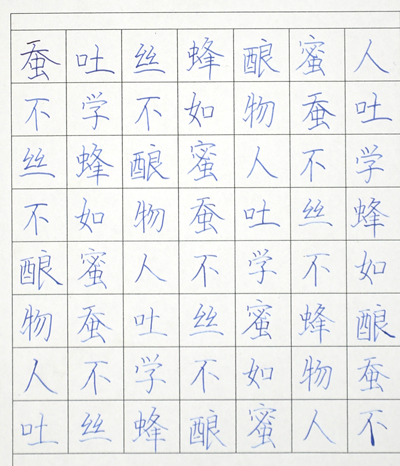 蚕吐丝蜂酿蜜人
不学不如物蚕吐
丝蜂酿蜜人不学
不如物蚕吐丝蜂
酿蜜人不学不如
物蚕吐丝蜜蜂酿
人不学不如物蚕
吐丝蜂酿蜜人不